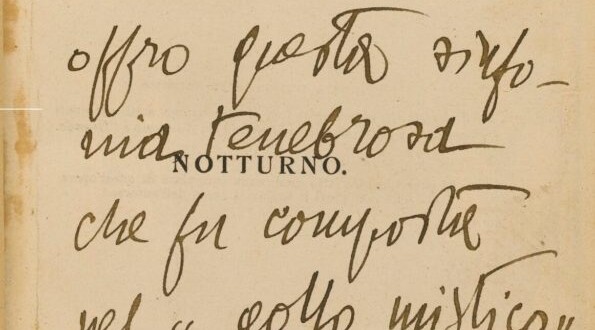 offro questa sinfo-
nia tenebrosa
NOTTURNO.
che fu composta
nel "golfo mistico"